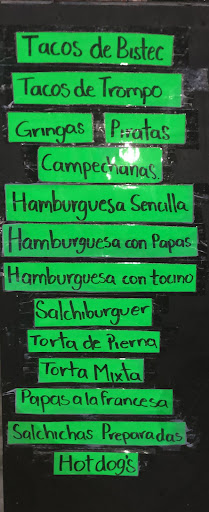 Tacos de Bistec
Tacos de Trompo
Gringas Piratas
Campechanas
Hamburguesa Sencilla
Hamburguesa con Papas
Hamburguesa con tocino
Salchiburguer
Torta de Pierna
Torta Mixta
Papas a la francesa
Salchichas Preparadas
Hotdog's